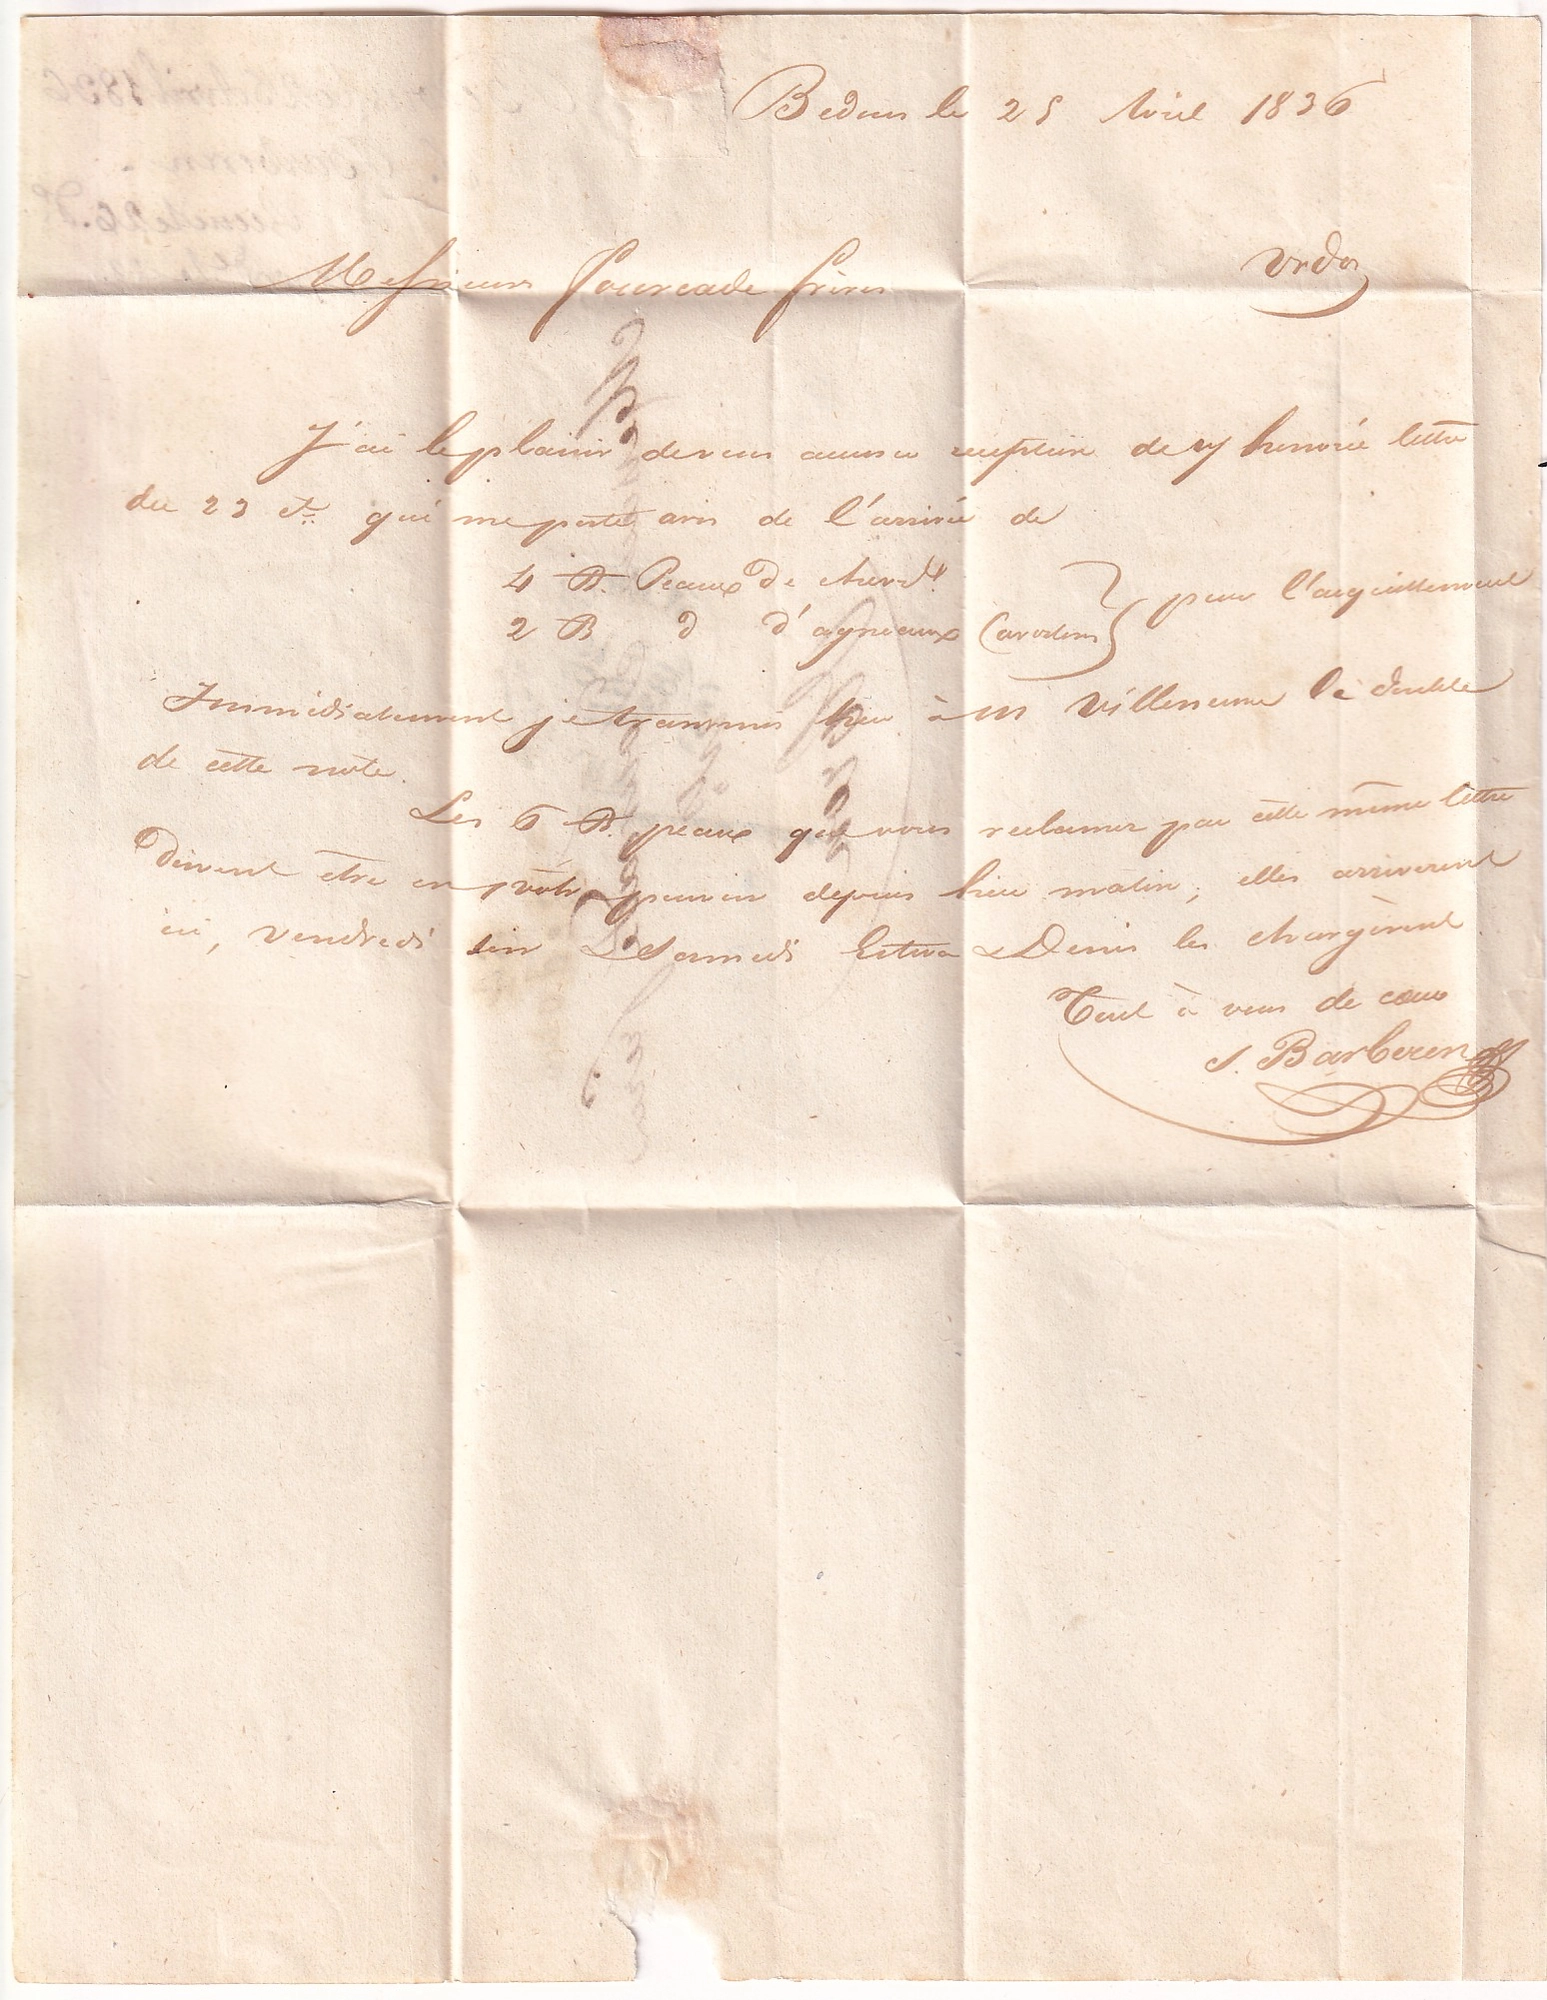 Bedous le 25 Avril 1836
Messieurs Fourcade frères
Urdos
J'ai le plaisir de vous accuser reception de v/ honorée lettre
du 23 ct. qui me porte avis de l'arrivée de
4 B. Peaux de chev.x
2 B d d'agneaux Cavotins } pour l'acquittement
Immédiatement je transmis hier à M Villeneuve le double
de cette note.
Les 6 B. peaux que vous reclamez par cette même lettre
Doivent être en votre pouvoir depuis hier matin; elles arrivèrent
ici, vendredi soir & Samedi Esteva & Denis les chargèrent
Tout à vous de cœur
J. Barberen